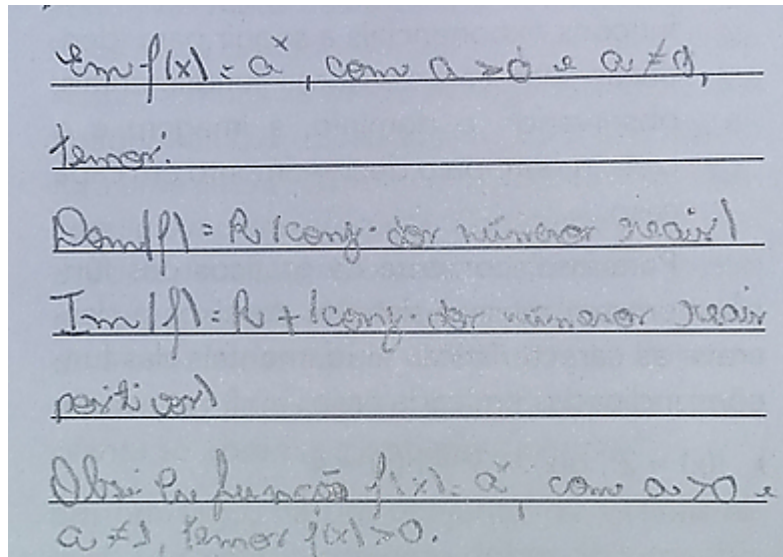 Em f(x) = aˣ, com a > 0 e a ≠ 1,
temos:
Dom(f) = R (conj. dos números reais)
Im(f) = R + (conj. dos números reais
positivos)
Obs: Em função f(x) = aˣ, com a > 0 e
a ≠ 1, temos f(x) > 0.